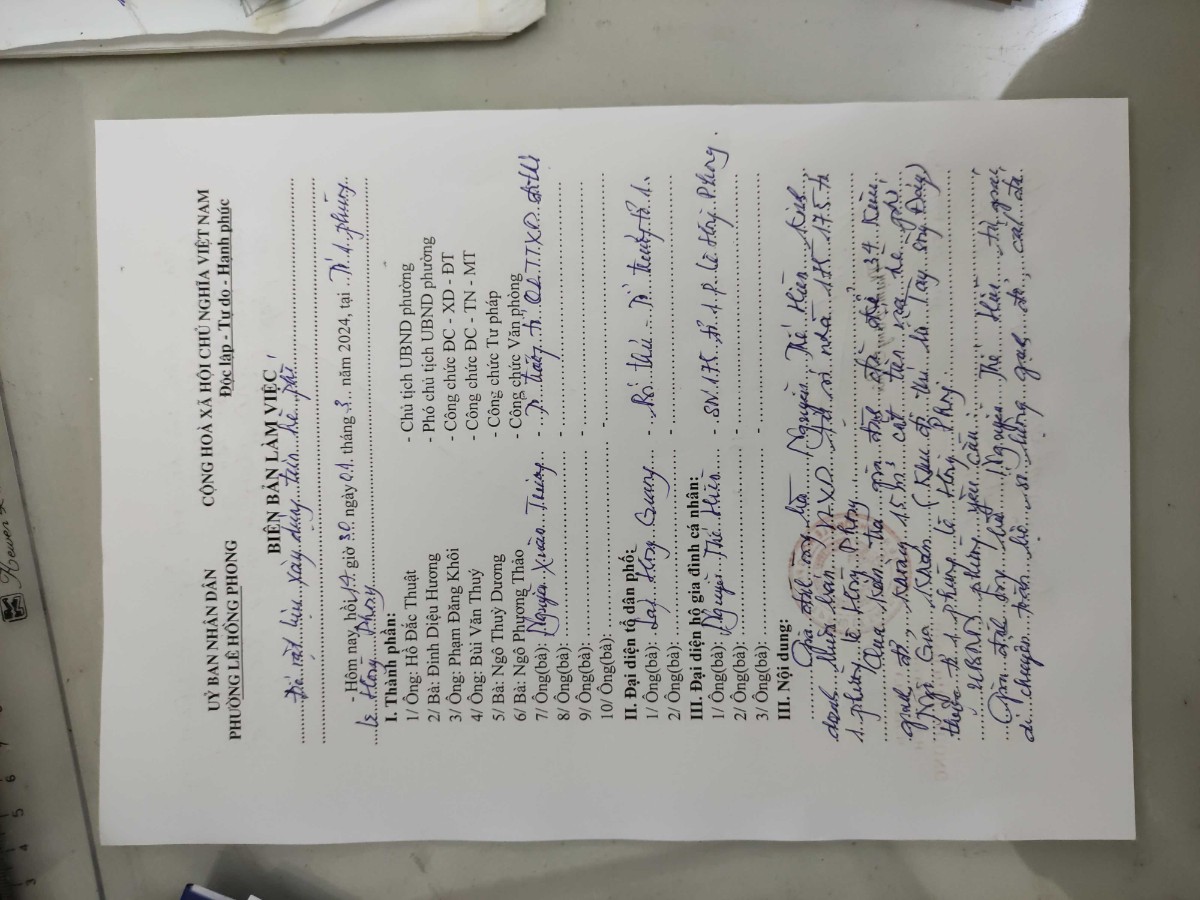 3 4 5 6 7
Hewen
UỶ BAN NHÂN DÂN
PHƯỜNG LÊ HỒNG PHONG
CỘNG HOÀ XÃ HỘI CHỦ NGHĨA VIỆT NAM
Độc lập - Tự do - Hạnh phúc
BIÊN BẢN LÀM VIỆC
Để vật liệu xây dựng trên hè phố
- Hôm nay, hồi 14 giờ 30 ngày 01 tháng 3 năm 2024, tại Tổ 1 phường
Lê Hồng Phong
I. Thành phần:
1/ Ông: Hồ Đắc Thuật - Chủ tịch UBND phường
2/ Bà: Đinh Diệu Hương - Phó chủ tịch UBND phường
3/ Ông: Phạm Đăng Khôi - Công chức ĐC - XD - ĐT
4/ Ông: Bùi Văn Thuý - Công chức ĐC - TN - MT
5/ Bà: Ngô Thuỳ Dương - Công chức Tư pháp
6/ Bà: Ngô Phương Thảo - Công chức Văn phòng
7/ Ông(bà): Nguyễn Xuân - Tổ trưởng tổ QLTTXD đô thị
8/ Ông(bà): -
9/ Ông(bà): -
10/ Ông(bà): -
II. Đại diện tổ dân phố:
1/ Ông(bà): Hồng Quang - Bí thư - Tổ trưởng tổ 1.
2/ Ông(bà): -
III. Đại diện hộ gia đình cá nhân:
1/ Ông(bà): Nguyễn Thế Hiền - SN 175 tổ 1 p. Lê Hồng Phong.
2/ Ông(bà): -
3/ Ông(bà): -
III. Nội dung:
Gia đình ông bà Nguyễn Thế Hiền kinh
doanh buôn bán VLXD tại số nhà 175 tổ
1 phường Lê Hồng Phong
Qua kiểm tra gia đình đã để 34 kiêu
gạch đỏ, khoảng 15 m³ cát trên hè phố
Ngô Gia Khảm (Khu đô thị Tây sông Đáy)
thuộc tổ 1 phường Lê Hồng Phong.
UBND phường yêu cầu:
Gia đình ông bà Nguyễn Thế Hiền tự giác
di chuyển toàn bộ số lượng gạch đỏ, cát đã